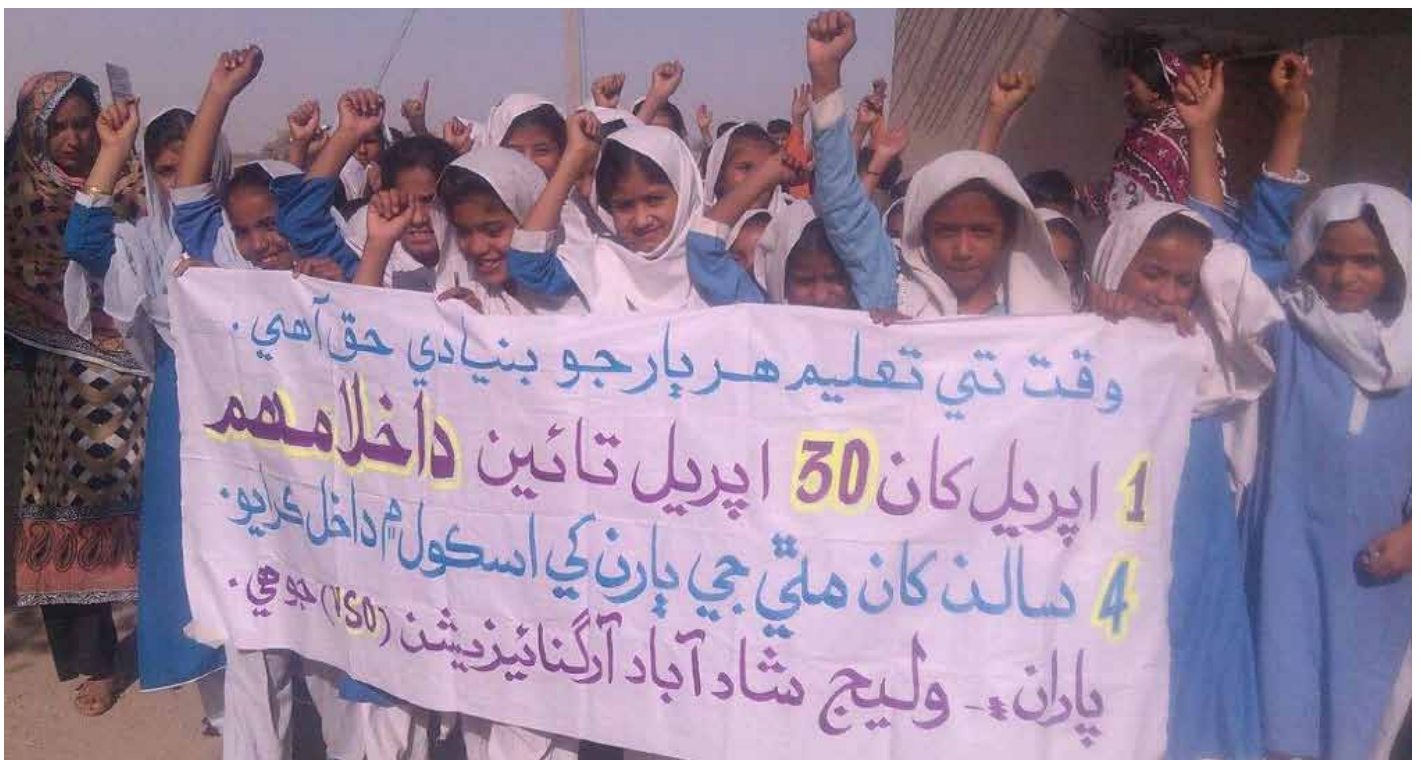 وقت تي تعليم هر ٻار جو بنيادي حق آهي.
1 اپريل کان 30 اپريل تائين داخلا مهم
4 سالن کان مٿي جي ٻارن کي اسڪول ۾ داخل ڪرايو.
پاران:- وليج شادآباد آرگنائيزيشن (VSO) جوهي.